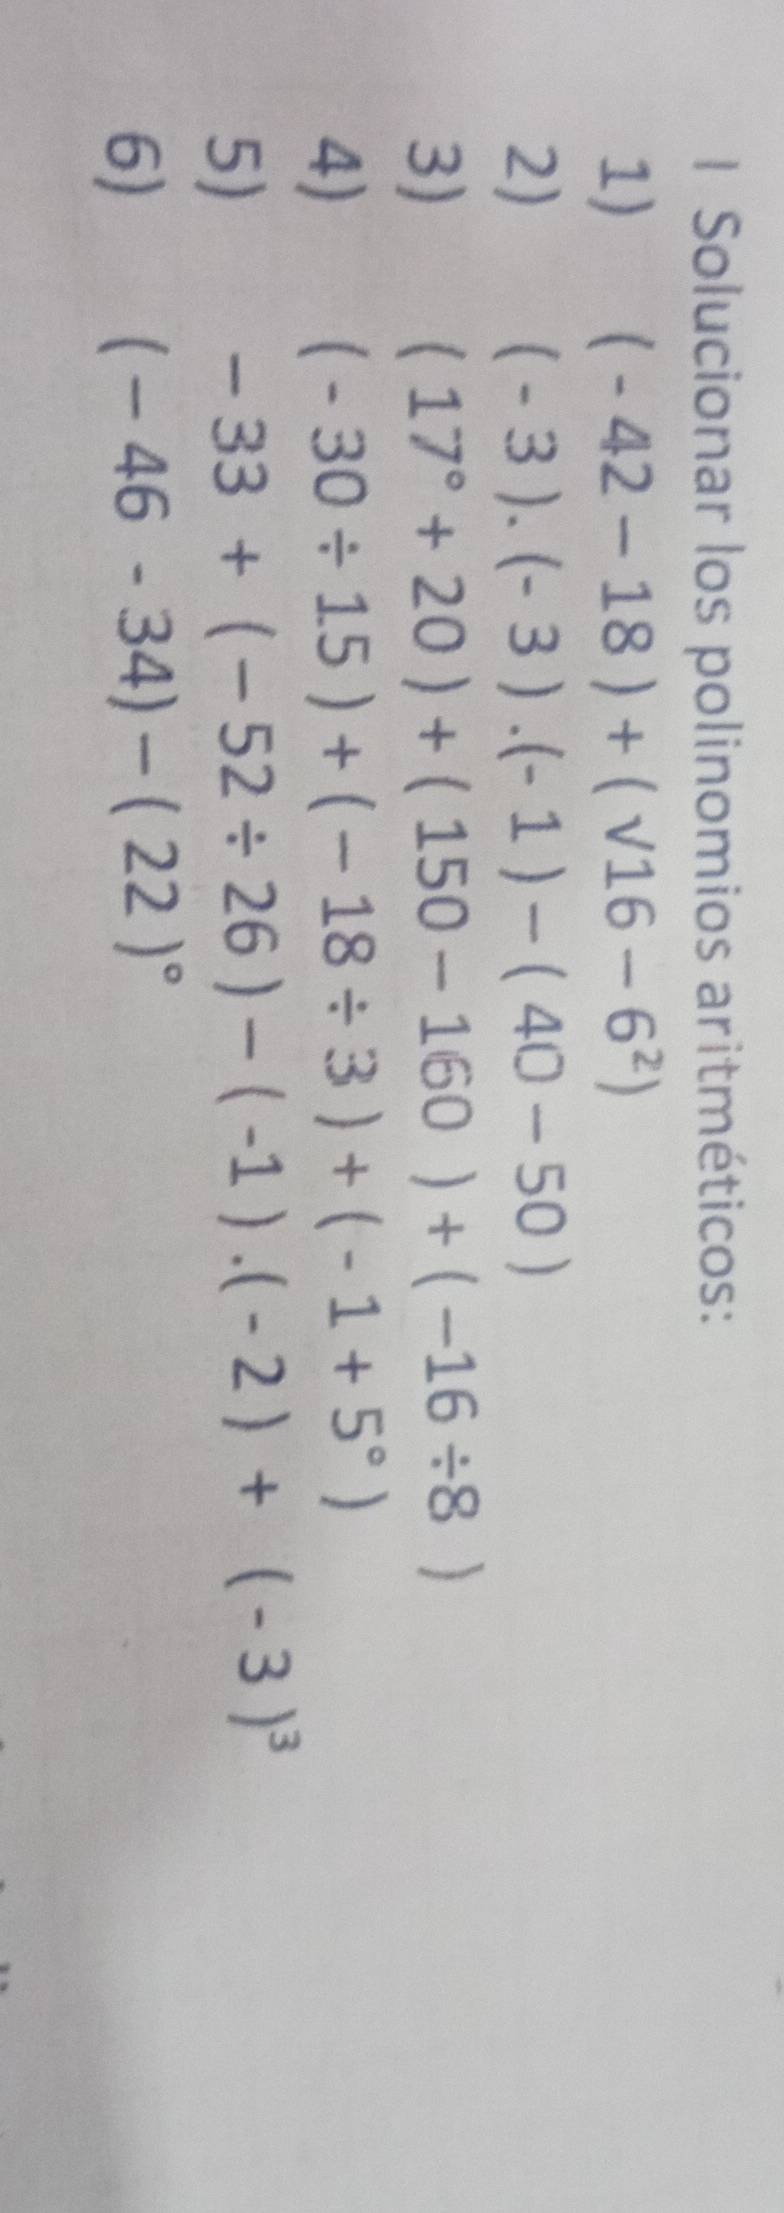 I Solucionar los polinomios aritméticos:
1) ( - 42 – 18 ) + ( √16 – 6²)
2) ( - 3 ). (- 3 ) .(- 1 ) – ( 40 – 50 )
3) ( 17° + 20 ) + ( 150 – 160 ) + ( –16 ÷8 )
4) ( - 30 ÷ 15 ) + ( – 18 ÷ 3 ) + ( - 1 + 5° )
5) – 33 + ( – 52 ÷ 26 ) – ( -1 ) .( - 2 ) + ( - 3 )³
6) ( – 46 - 34) – ( 22 )°